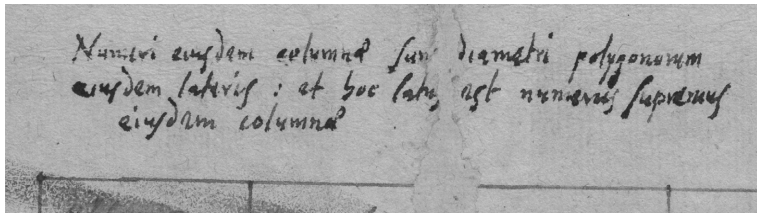 Numeri eiusdem columnæ sunt diametri polygonorum
eiusdem lateris : et hoc latus est numerus supremus
eiusdem columnæ